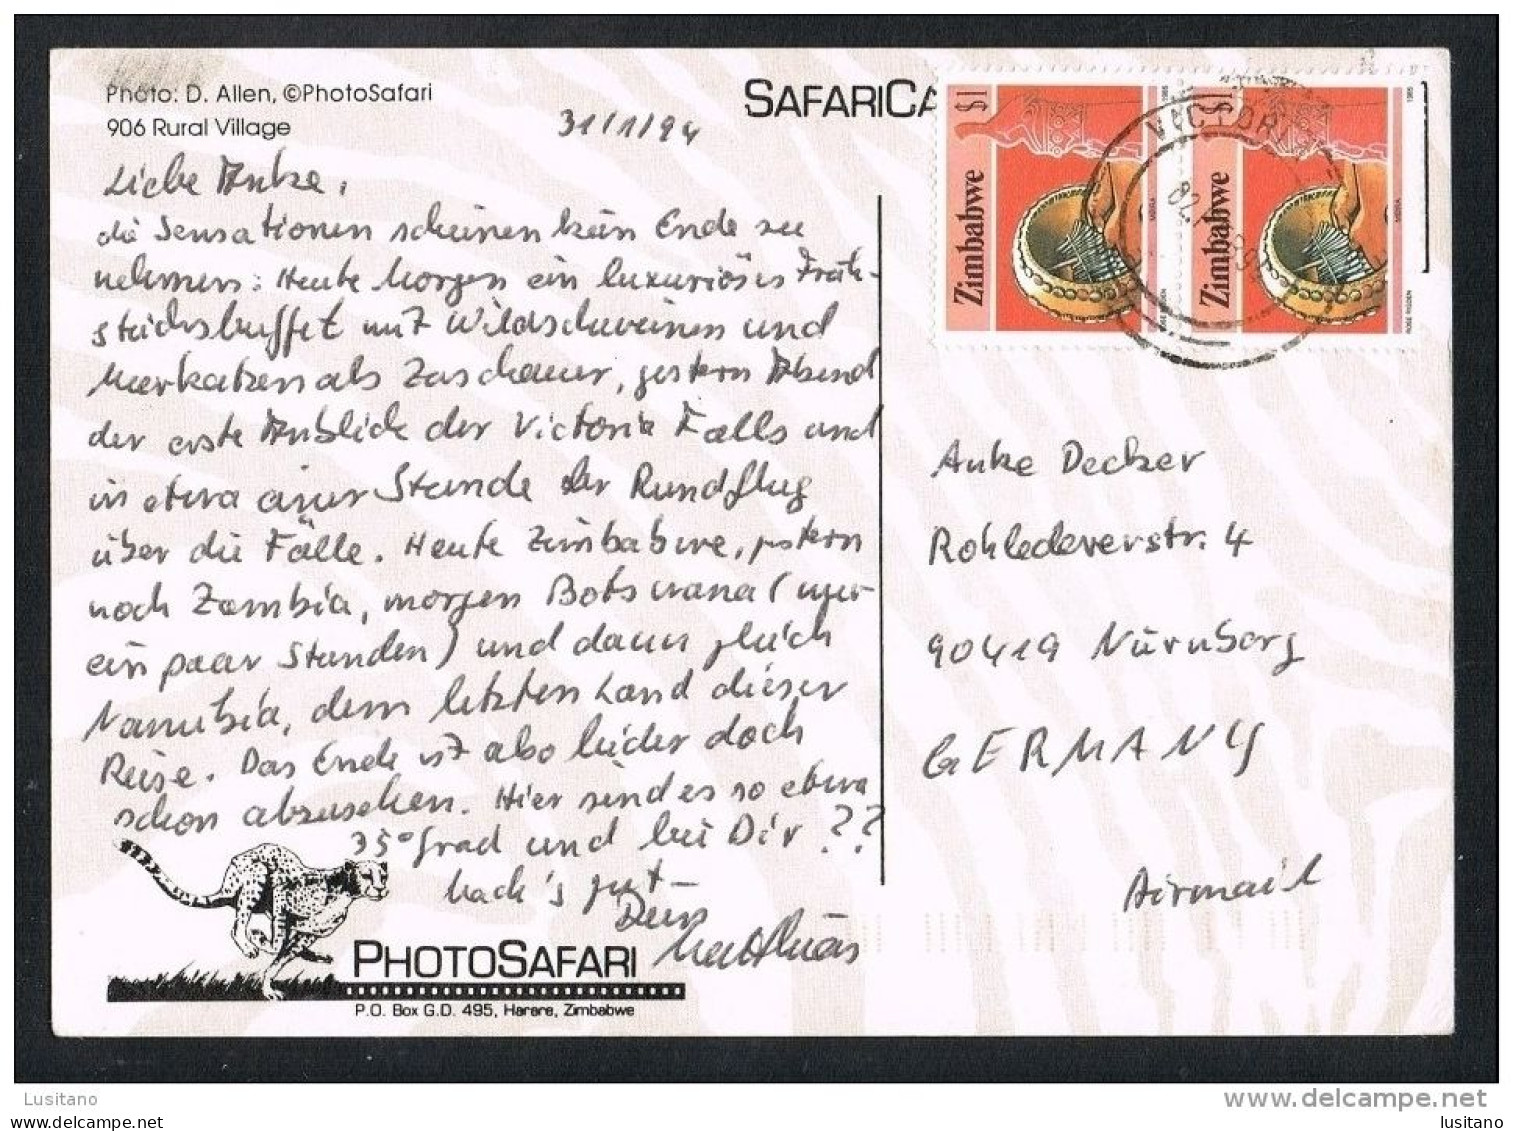 Photo: D. Allen, ©PhotoSafari
906 Rural Village
SAFARICA
31/1/94
Liebe Anke,
die Sensationen scheinen kein Ende zu
nehmen: Heute Morgen ein luxuriöses Früh-
stücksbuffet mit Wildschweinen und
Meerkatzen als Zuschauer, gestern Abend
der erste Anblick der Victoria Falls und
in etwa einer Stunde der Rundflug
über die Fälle. Heute Zimbabwe, gestern
noch Zambia, morgen Botswana (nur
ein paar Stunden) und dann gleich
Namibia, dem letzten Land dieser
Reise. Das Ende ist also leider doch
schon abzusehen. Hier sind es so etwa
35° Grad und bei Dir ??
Mach's gut –
Dein
Matthias
PHOTOSAFARI
P.O. Box G.D. 495, Harare, Zimbabwe
$1
Zimbabwe
MBIRA
1985
ROSE RIGDEN
$1
Zimbabwe
MBIRA
1985
ROSE RIGDEN
VICTORI
Anke Decker
Rohledererstr. 4
90419 Nürnberg
GERMANY
Airmail
Lusitano
delcampe.net
lusitano
delcampe.net
lusitano